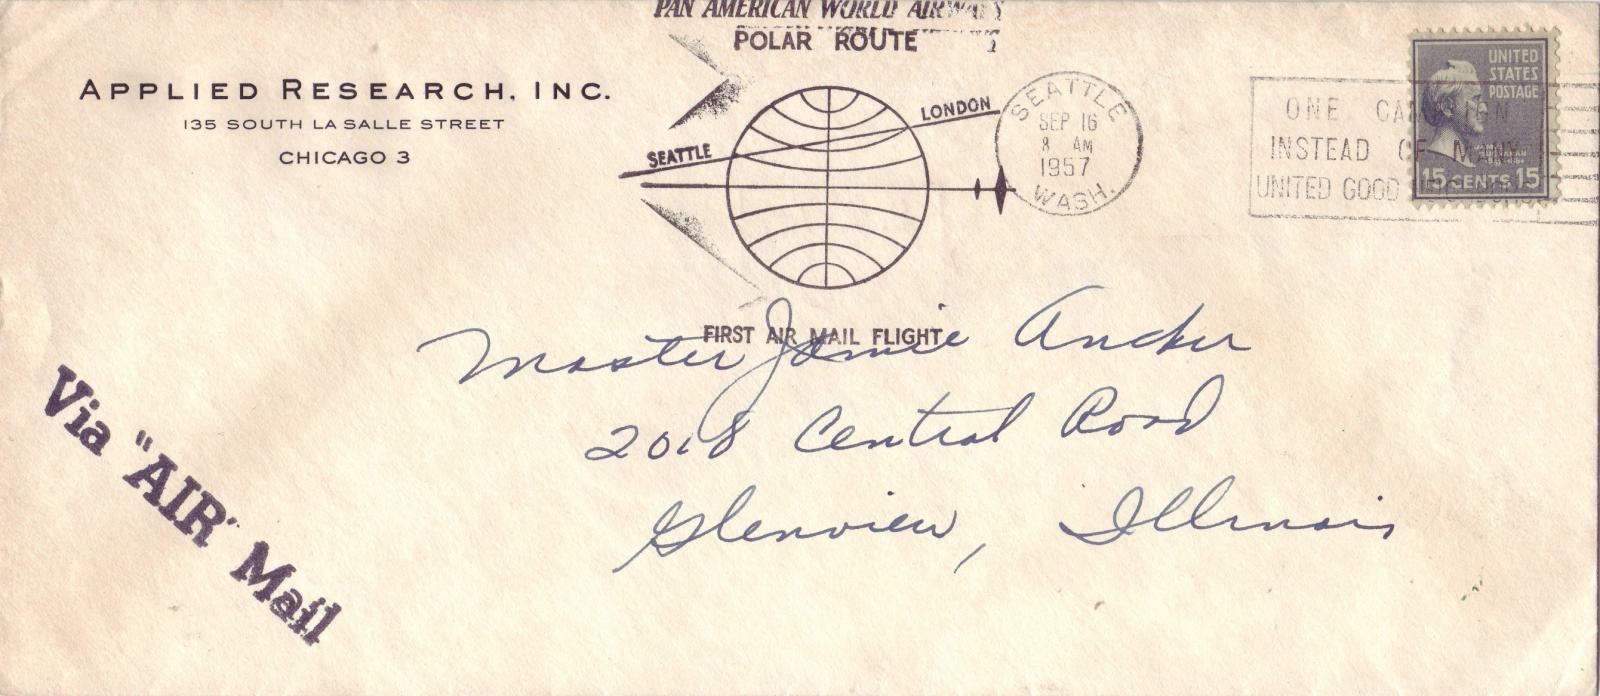 PAN AMERICAN WORLD AIRWAYS
POLAR ROUTE
APPLIED RESEARCH, INC.
135 SOUTH LA SALLE STREET
CHICAGO 3
SEATTLE
LONDON
SEATTLE
SEP 16
8 AM
1957
WASH.
ONE CAMPAIGN
INSTEAD OF MANY
UNITED GOOD
UNITED
STATES
POSTAGE
15 CENTS 15
FIRST AIR MAIL FLIGHT
Master Jamie Ancker
2018 Central Road
Glenview, Illinois
Via "AIR" Mail